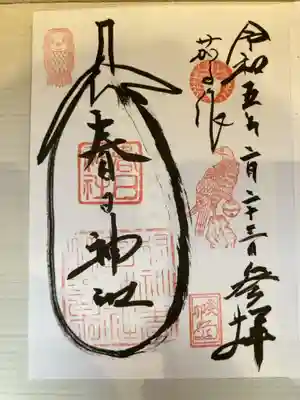 令和五年 月二十三日参拝
茄子作
春日神社
春日社